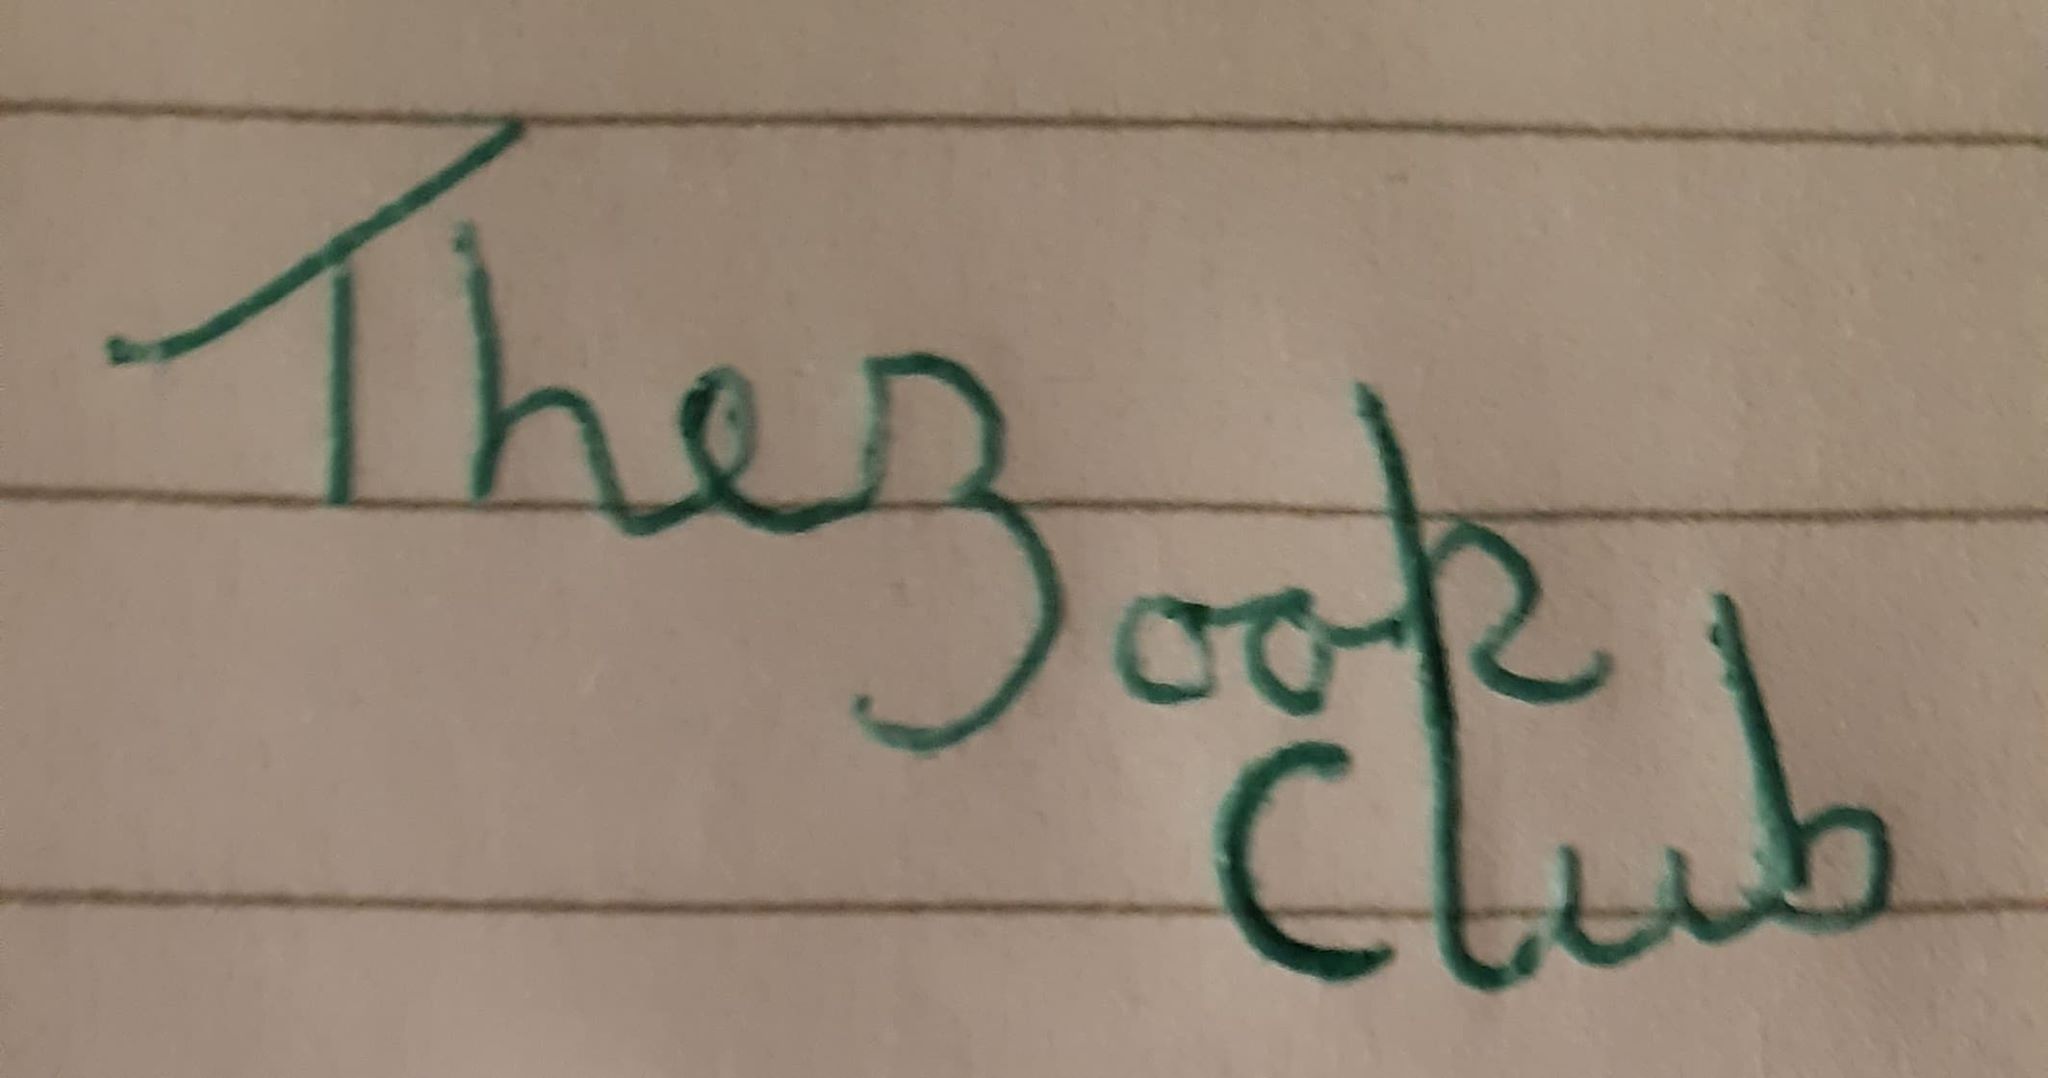 The Book
Club